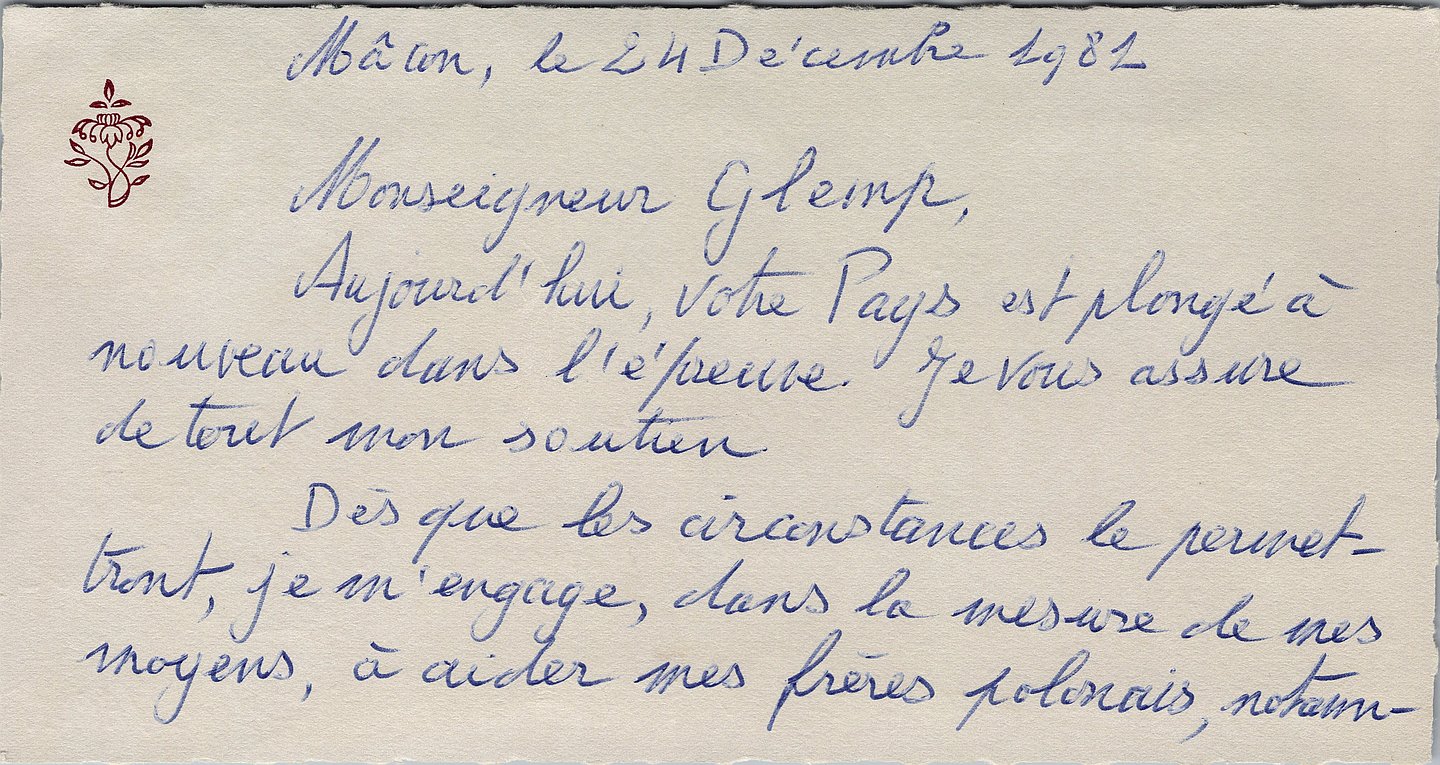 Mâcon, le 24 Décembre 1981
Monseigneur Glemp,
Aujourd'hui, votre Pays est plongé à
nouveau dans l'épreuve. Je vous assure
de tout mon soutien
Dès que les circonstances le permet-
tront, je m'engage, dans la mesure de mes
moyens, à aider mes frères polonais, notam-